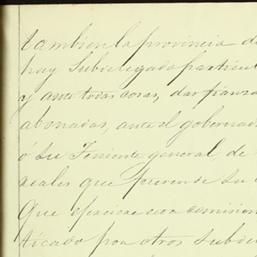 tambien la provincia de
hay Subdelegado particul
y ante todas cosas, dar fianza
abonadas, ante el gobernad
ó su Teniente general de
reales que fueren de su
Que ejerciere con comision
ticado por otros Subde